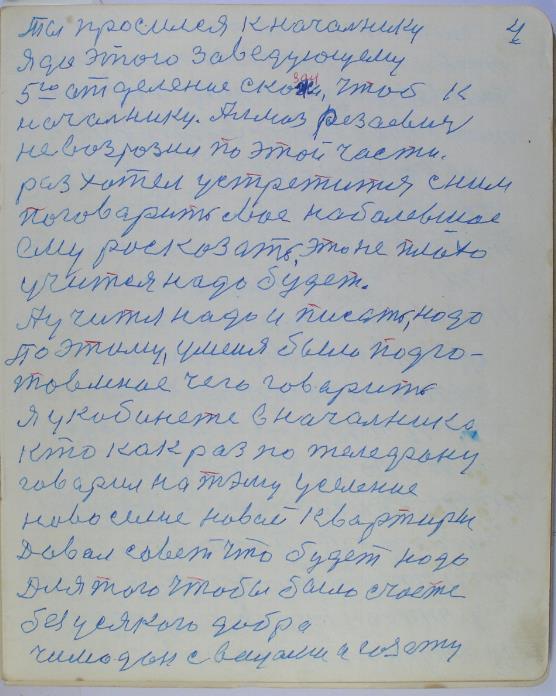 Ты просился к началнику 4
я до этого заведующему
5го отделение сказал, чтоб к
началнику. Алмаз Резаевич
не возрозил по этой части.
раз хотел устретится сним
поговарить свое наболевшое
ему росказать, это не плохо
учится надо будет.
А учится надо и писать, надо
поэтому, уменя было подго-
товленое чего говарить
я укобинете в началнико
кто как раз по теледрону
говарил на тэму уселение
новоселие новой квартиры
Довал совет что будет надо
Для того чтобы было счасте
без усякого добра
чимодан с вещами и газету